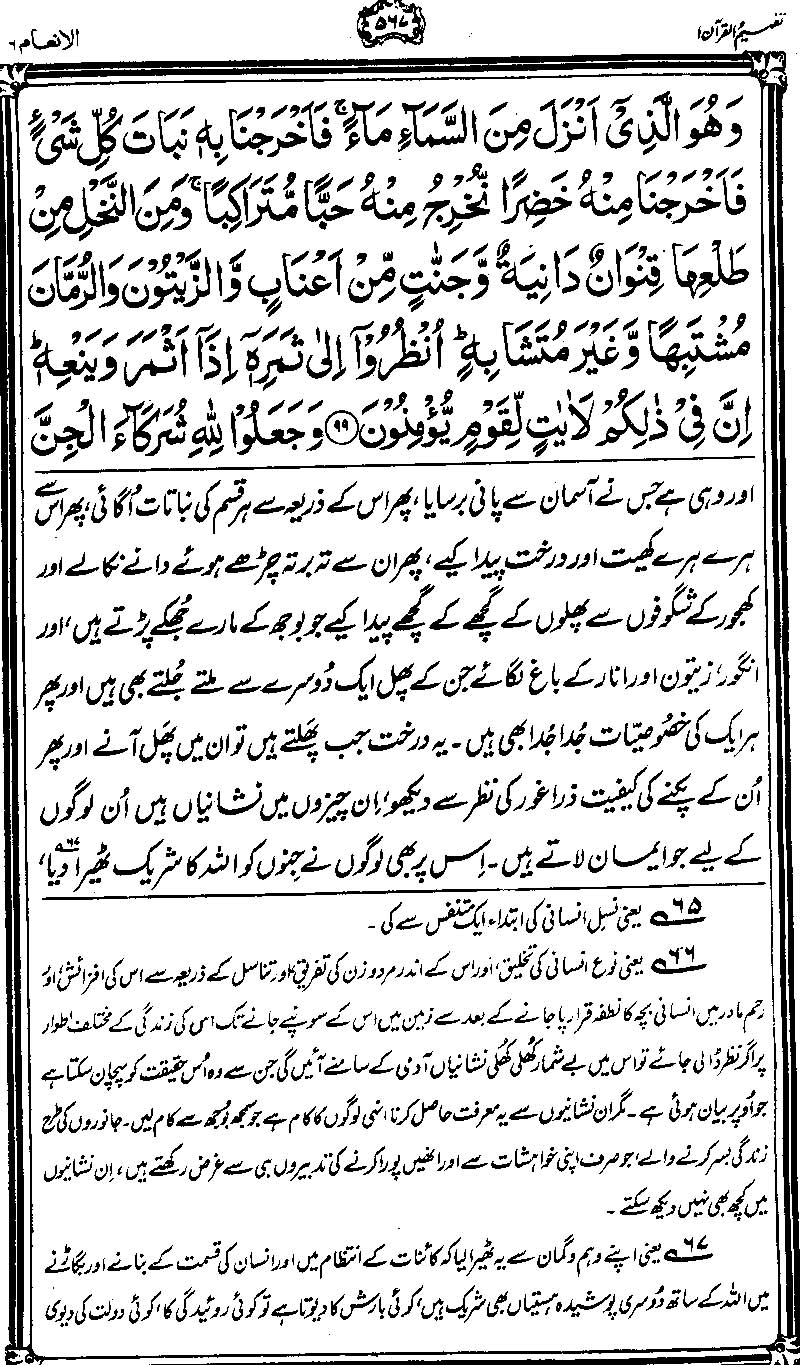 تفہیم القرآن ۱
۵۶۷
الانعام ۶
وَهُوَ الَّذِىْٓ اَنْزَلَ مِنَ السَّمَآءِ مَآءً ۚ فَاَخْرَجْنَا بِهٖ نَبَاتَ كُلِّ شَىْءٍ
فَاَخْرَجْنَا مِنْهُ خَضِرًا نُّخْرِجُ مِنْهُ حَبًّا مُّتَرَاكِبًا ۚ وَمِنَ النَّخْلِ مِنْ
طَلْعِهَا قِنْوَانٌ دَانِيَةٌ وَّجَنّٰتٍ مِّنْ اَعْنَابٍ وَّالزَّيْتُوْنَ وَالرُّمَّانَ
مُشْتَبِهًا وَّغَيْرَ مُتَشَابِهٍ ؕ اُنْظُرُوْٓا اِلٰى ثَمَرِهٖٓ اِذَآ اَثْمَرَ وَيَنْعِهٖ ؕ
اِنَّ فِىْ ذٰلِكُمْ لَاٰيٰتٍ لِّقَوْمٍ يُّؤْمِنُوْنَ ۹۹ وَجَعَلُوْا لِلّٰهِ شُرَكَآءَ الْجِنَّ
اور وہی ہے جس نے آسمان سے پانی برسایا، پھر اس کے ذریعہ سے ہر قسم کی نباتات اُگائی، پھر اس سے
ہرے ہرے کھیت اور درخت پیدا کیے، پھر ان سے تہ بر تہ چڑھے ہوئے دانے نکالے اور
کھجور کے شگوفوں سے پھلوں کے گچھے کے گچھے پیدا کیے جو بوجھ کے مارے جُھکے پڑتے ہیں، اور
انگور، زیتون اور انار کے باغ لگائے جن کے پھل ایک دُوسرے سے ملتے جُلتے بھی ہیں اور پھر
ہر ایک کی خصُوصیّات جُدا جُدا بھی ہیں۔ یہ درخت جب پھَلتے ہیں تو ان میں پھَل آنے اور پھر
اُن کے پکنے کی کیفیت ذرا غور کی نظر سے دیکھو، اِن چیزوں میں نشانیاں ہیں اُن لوگوں
کے لیے جو ایمان لاتے ہیں۔ اِس پر بھی لوگوں نے جِنوں کو اللہ کا شریک ٹھیرا دیا۶۷،
۶۵ یعنی نسلِ انسانی کی ابتداء ایک متنفس سے کی۔
۶۶ یعنی نوعِ انسانی کی تخلیق، اور اس کے اندر مرد و زن کی تفریق، اور تناسل کے ذریعہ سے اس کی افزائش، اور
رحمِ مادر میں انسانی بچہ کا نطفہ قرار پا جانے کے بعد سے زمین میں اس کے سونپے جانے تک اس کی زندگی کے مختلف اطوار
پر اگر نظر ڈالی جائے تو اس میں بے شمار کُھلی کُھلی نشانیاں آدمی کے سامنے آئیں گی جن سے وہ اُس حقیقت کو پہچان سکتا ہے
جو اُوپر بیان ہوئی ہے۔ مگر ان نشانیوں سے یہ معرفت حاصل کرنا انہی لوگوں کا کام ہے جو سمجھ بُوجھ سے کام لیں۔ جانوروں کی طرح
زندگی بسر کرنے والے، جو صرف اپنی خواہشات سے اور انھیں پورا کرنے کی تدبیروں ہی سے غرض رکھتے ہیں، اِن نشانیوں
میں کچھ بھی نہیں دیکھ سکتے۔
۶۷ یعنی اپنے وہم و گمان سے یہ ٹھیرا لیا کہ کائنات کے انتظام میں اور انسان کی قسمت کے بنانے اور بگاڑنے
میں اللہ کے ساتھ دُوسری پوشیدہ ہستیاں بھی شریک ہیں، کوئی بارش کا دیوتا ہے تو کوئی روئیدگی کا، کوئی دولت کی دیوی